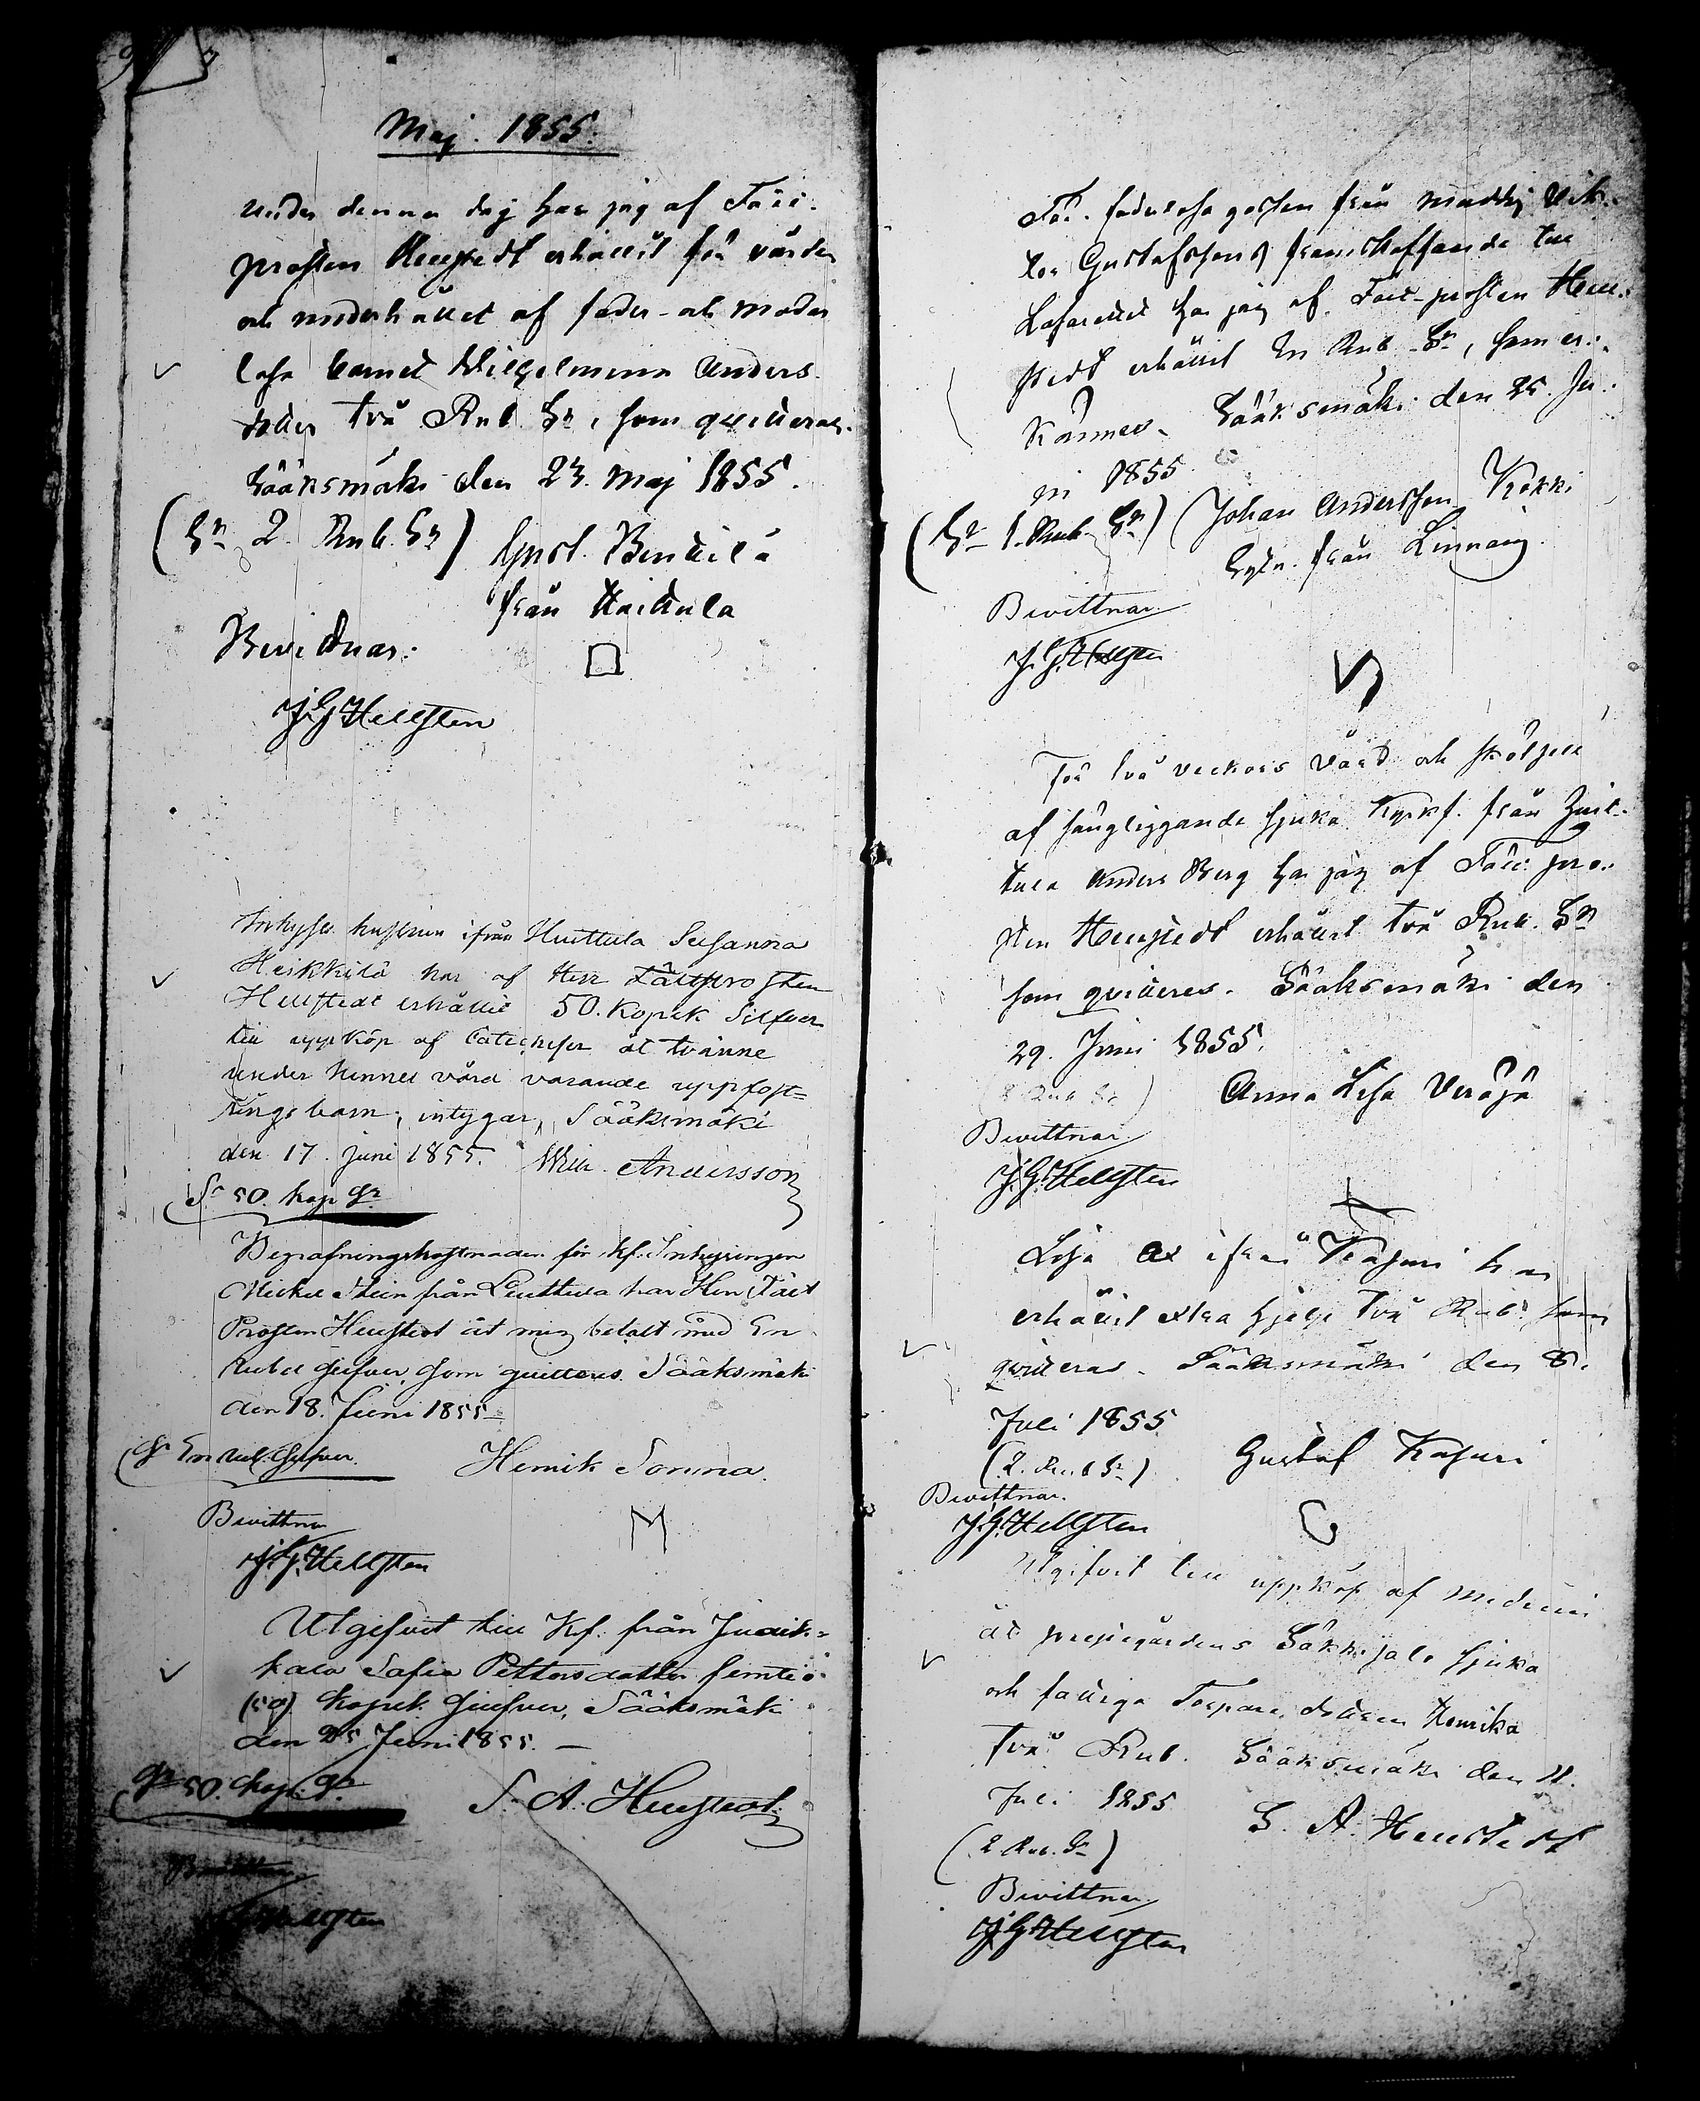 Maj. 1855.
under denna dag har jag af Fält-
prosten Hellstedt erhållit för vården
och underhållet af fader- och moder
lösa barnet Wilhelmina Anders
dotter två Rub. Sr, som qvitteras.
Sääksmäki den 23. Maj 1855.
(Sr 2 Rub. Sr) Gust. Benttilä
från
Bevittnar:
J G Hellsten
Inhyses hustrun ifrån Huittula Susanna
Heikkilä har af Herr Fältprosten
Hellstedt erhållit 50. Kopek Silfver
till uppköp af Catecheser åt tvänne
under hennes vård varande uppfost=
rings barn, intygar, Sääksmäki
den 17. Juni 1855. Wilh. Andersson
Sr 50. kop Sr
Begrafningskostnaden för kf. Inhysingen
Mickel Stein från har Herr Fält
Prosten Hellstedt åt mig betalt med En
Rubel Silfver, som quitteras. Sääksmäki
den 18. Juni 1855
(Sr En Rub. Silfver. Henrik Sonna.
Bevittnar
J. G. Hellsten
Utgifvit till Kf. från
kala Sofia Pettersdotter femtio
(50) kopek Silfver, Sääksmäki
den 25 Juni 1855. —
Sr 50. kop. Sr. S. A. Hellstedt.
Bevittnar
Hellsten
För faderlösa gossen från Vik-
tor Gustafssons framskaffande till
Lasarettet har jag af Fält-prosten Hell-
stedt erhållit En Rub. Sr, som er-
kännes. Sääksmäki den 25. Ju-
ni 1855
(Sr 1. Rub. Sr) Johan Andersson Kokki
från Linnais.
Bevittnar
J. G. Hellsten
För två veckors vård och skötsel
af sängliggande sjuka Kyrkf. från Huit-
tula Anders Berg har jag af Fält pro-
sten Hellstedt erhållit två Rub. Sr
som qvitteras. Sääksmäki den
29. Juni 1855.
(2 Rub Sr) Anna Lisa Veräjä
Bevittnar
J. G. Hellsten
Lisa ifrån har
erhållit extra hjelp två Rub. som
qvitteras. Sääksmäki den 8.
Juli 1855
(2. Rub Sr) Gustaf
Bevittnar.
J. G. Hellsten
Utgifvit till uppköp af medicin
åt sjuka
och fattiga Torpare dottren Henrika
två Rub. Sääksmäki den 11.
Juli 1855
(2 Rub. Sr) S. A. Hellstedt
Bevittnar
J G Hellsten